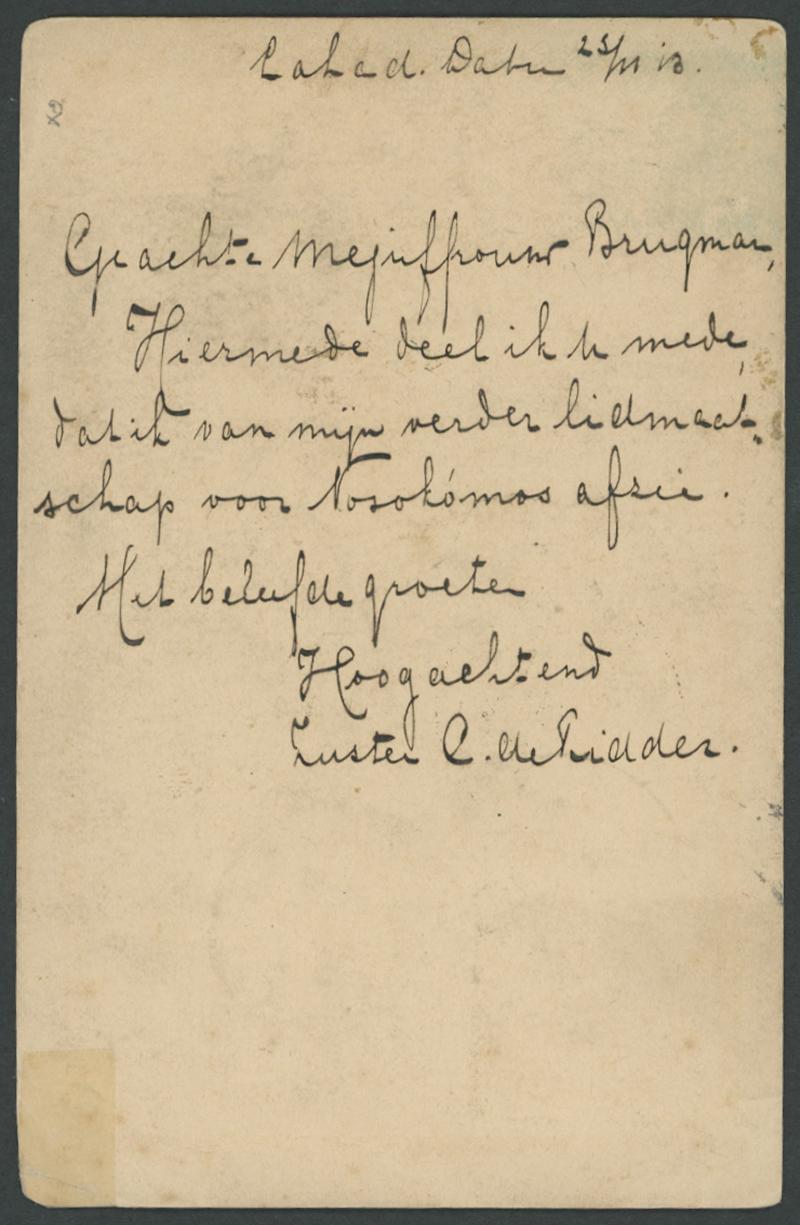 Lahad. Datu 23/VI 13.
Geachte Mejuffrouw Brugman,
Hiermede deel ik U mede,
dat ik van mijn verder lidmaat-
schap voor Nosokómos afzie.
Met beleefde groeten
Hoogachtend
Zuster C. de Ridder.